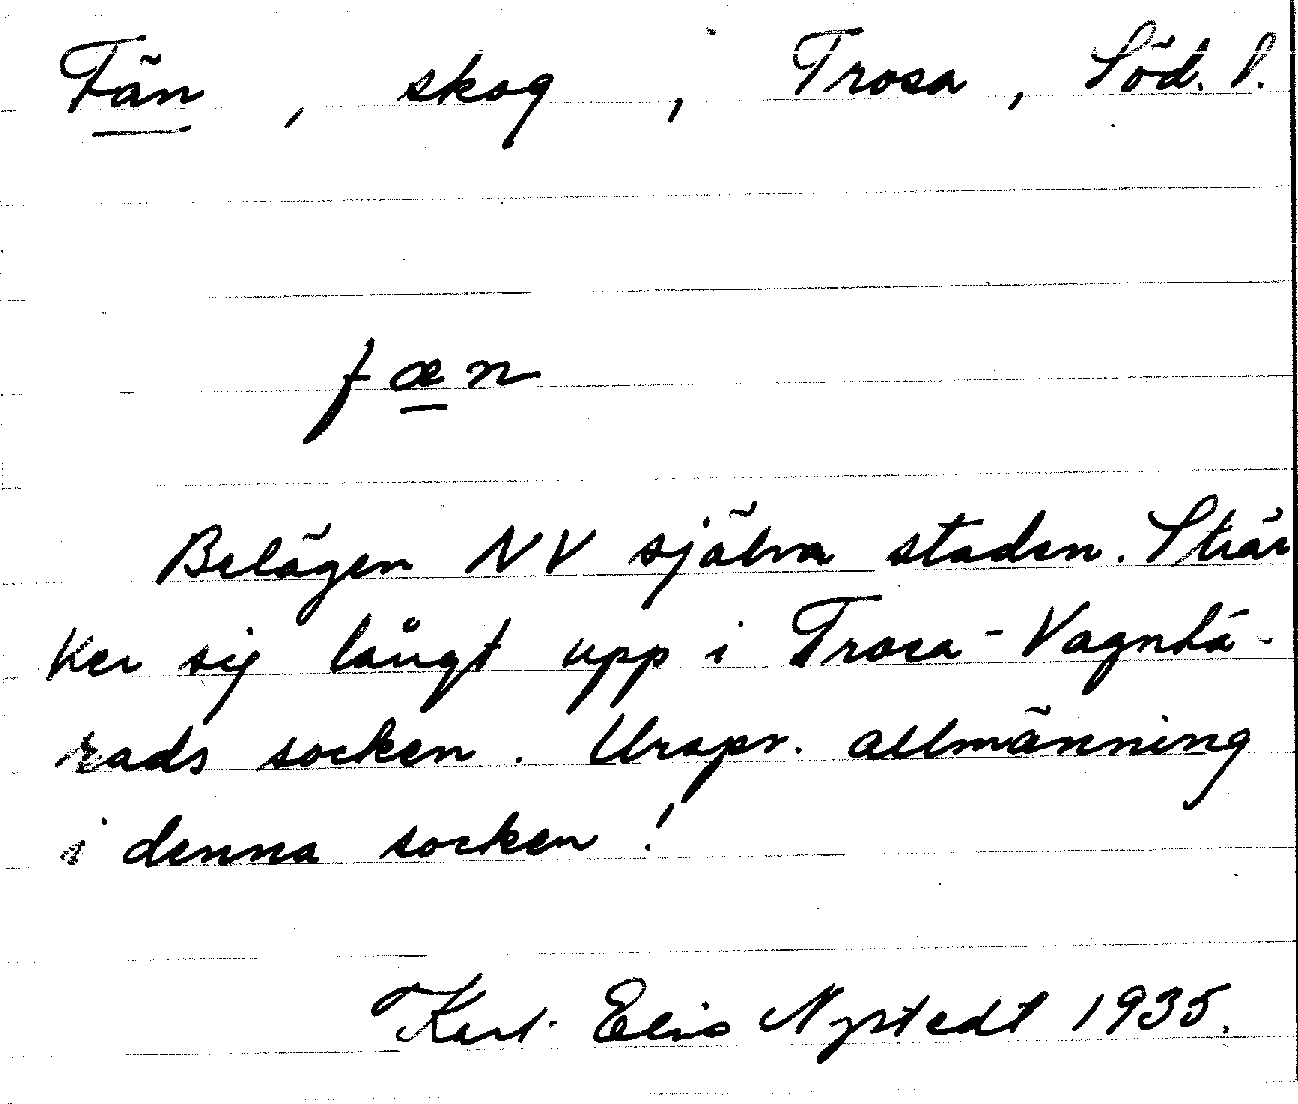 Fän, skog, Trosa, Söd. l.
fæn
Belägen NV själva staden. Sträc
ker sig långt upp i Trosa-Vagnhä-
rads socken. Urspr. allmänning
i denna socken!
Karl-Elis Nystedt 1935.